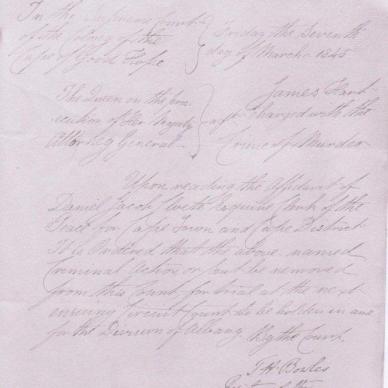 In the Supreme Court
of the Colony of the
Cape of Good Hope
Friday the Seventh
day of March 1845
The Queen on the
of Her Majesty
Attorney General
James
charged with the
Crime of Murder
Upon reading the Affidavit of
Daniel Jacob Cloete Esquire Clerk of the
Peace for Cape Town and Cape District
It is Ordered that the above named
Criminal Action or Suit be removed
from this Court for trial at the next
ensuing Circuit Court to be holden in and
for the Division of Albany By the Court
T. H. Bowles